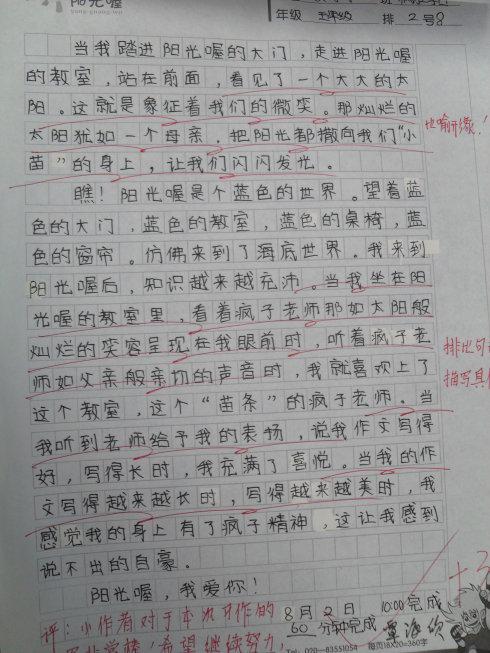 阳光喔
年级 五年级 排 2号8
当我踏进阳光喔的大门，走进阳光喔
的教室，站在前面，看见了一个大大的太
阳。这就是象征着我们的微笑。那灿烂的
太阳犹如一个母亲，把阳光都撒向我们“小
苗”的身上，让我们闪闪发光。
瞧！阳光喔是个蓝色的世界。望着蓝
色的大门，蓝色的教室，蓝色的桌椅，蓝
色的窗帘。仿佛来到了海底世界。我来到
阳光喔后，知识越来越充沛。当我坐在阳
光喔的教室里，看着疯子老师那如太阳般
灿烂的笑容呈现在我眼前时，听着疯子老
师如父亲般亲切的声音时，我就喜欢上了
这个教室，这个“苗条”的疯子老师。当
我听到老师给予我的表扬，说我作文写得
好，写得长时，我充满了喜悦。当我的作
文写得越来越长时，写得越来越美时，我
感觉我的身上有了疯子精神，这让我感到
说不出的自豪。
阳光喔，我爱你！
比喻形象！
排比句
描写具
8月2日 10:00完成
60分钟完成
评：小作者对于本次习作的
希望继续努力，
Tel: 020-83551054 每页18X20=360字